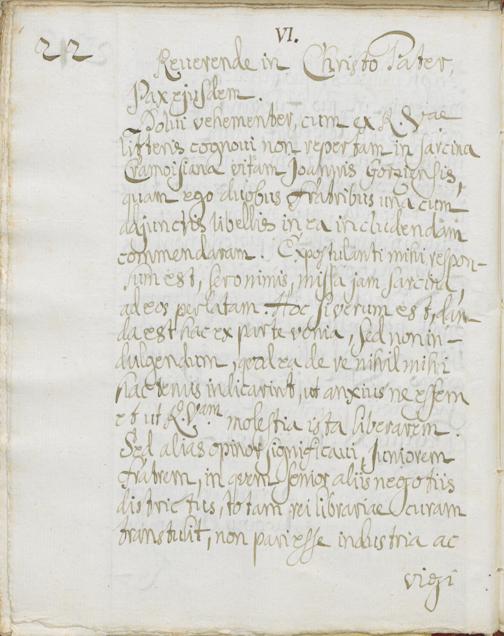 VI.
22
Reverende in Christo Pater,
Pax ejusdem.
Dolui vehementer, cum ex R. Vae
litteris cognovi non repertam in sarcina
Cramoisiana vitam Joannis Gorziensis,
quam ego duobus fratribus una cum
adjunctis libellis in ea includendam
commendaram. Expostulanti mihi respon-
sum est, sero nimis, missa jam sarcina,
ad eos perlatam. Hoc si verum est, dan-
da est hac ex parte venia, sed non in-
dulgendum, quod ea de re nihil mihi
hactenus indicarint, ut anxius ne essem
et ut R. Vam molestia ista liberarem.
Sed alias opinor significavi, Juniorem
fratrem, in quem senior aliis negotiis
districtus, totam rei librariae curam
transtulit, non pari esse industria ac
vigi